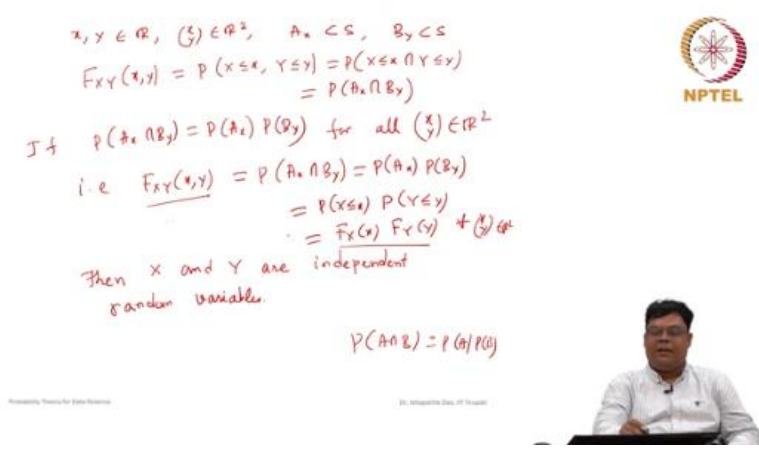 x, y ∈ ℝ, (x y) ∈ ℝ², Aₓ ⊂ S, B_y ⊂ S
F_XY(x,y) = P(X≤x, Y≤y) = P(X≤x ∩ Y≤y)
= P(Aₓ ∩ B_y)
If P(Aₓ ∩ B_y) = P(Aₓ) P(B_y) for all (x y) ∈ ℝ²
i.e F_XY(x,y) = P(Aₓ ∩ B_y) = P(Aₓ) P(B_y)
= P(X≤x) P(Y≤y)
= F_X(x) F_Y(y) ∀ (x y) ∈ ℝ²
Then X and Y are independent
random variables.
P(A∩B) = P(A) P(B)
NPTEL
Probability Theory for Data Science
Dr. Das, IIT Tirupati